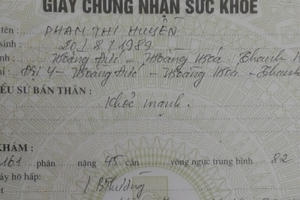 GIẤY CHỨNG NHẬN SỨC KHỎE
tên : PHẠM THỊ HUYỀN
sinh : 20/8/1989
: Hoằng Đức - Hoằng Hoá - Thanh H
: Đội 4 - Hoằng Đức - Hoằng Hoá - Thanh
ỀU SỬ BẢN THÂN :
Khỏe mạnh.
KHÁM :
161 phân nặng 45 cân vòng ngực trung bình : 82
áy hô hấp:
) Bthường